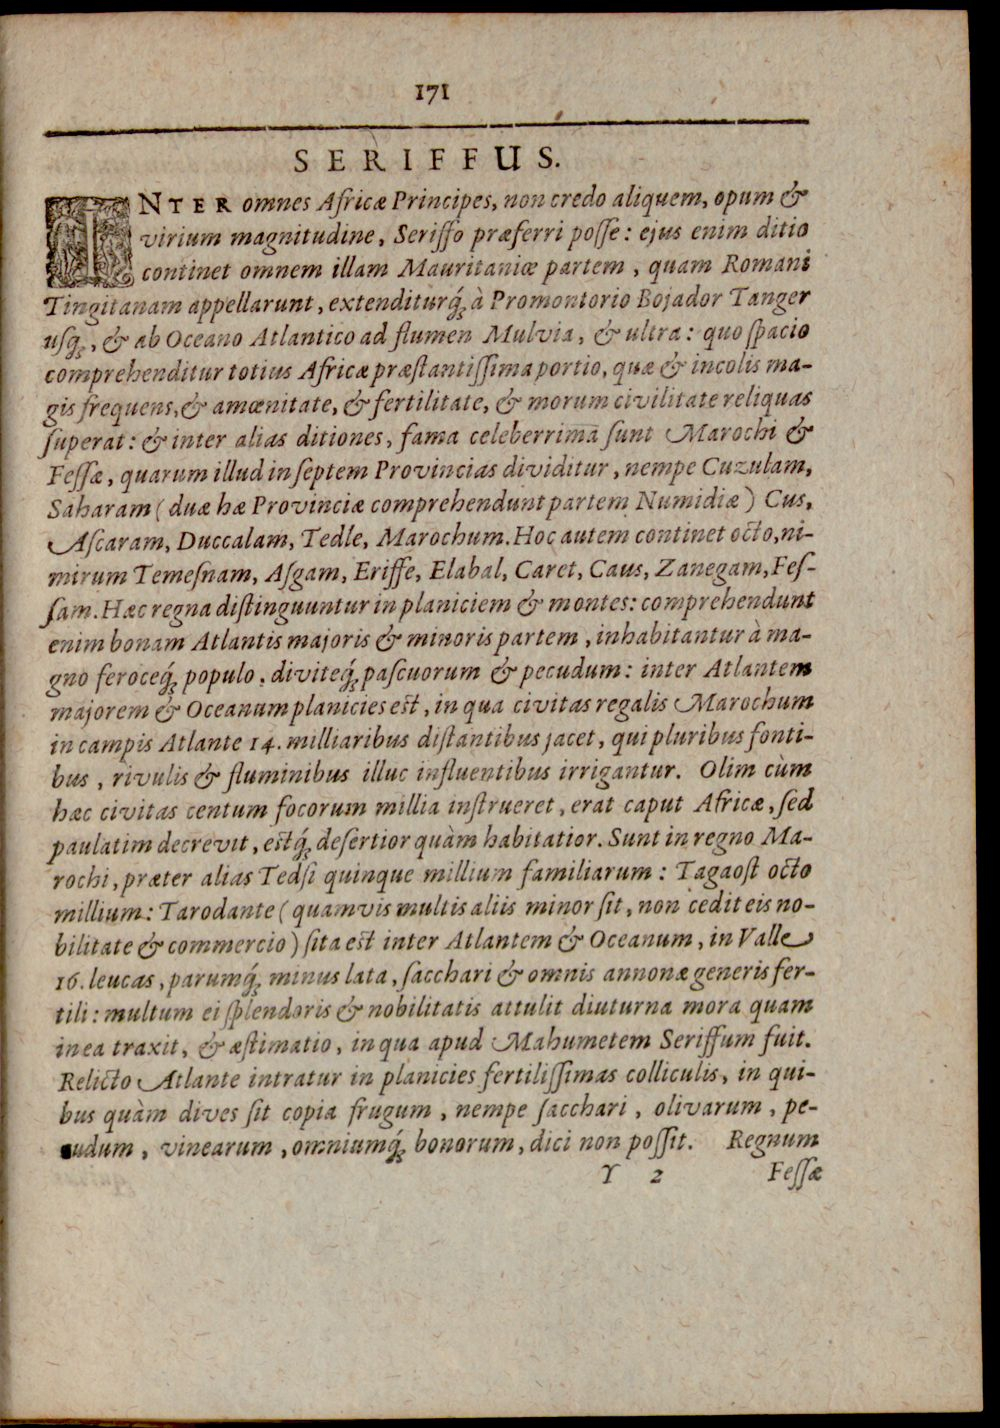 171
SERIFFUS.
INTER omnes Africæ Principes, non credo aliquem, opum &
virium magnitudine, Seriffo præferri poſſe: ejus enim ditio
continet omnem illam Mauritaniæ partem, quam Romani
Tingitanam appellarunt, extenditurq́; à Promontorio Bojador Tanger
uſq;, & ab Oceano Atlantico ad flumen Mulvia, & ultra: quo ſpacio
comprehenditur totius Africæ præſtantiſſima portio, quæ & incolis ma-
gis frequens, & amœnitate, & fertilitate, & morum civilitate reliquas
ſuperat: & inter alias ditiones, fama celeberrima ſunt Marochi &
Feſſæ, quarum illud in ſeptem Provincias dividitur, nempe Cuzulam,
Saharam (duæ hæ Provinciæ comprehendunt partem Numidiæ) Cus,
Aſcaram, Duccalam, Tedle, Marochum. Hoc autem continet octo, ni-
mirum Temeſnam, Aſgam, Eriffe, Elabal, Caret, Caus, Zanegam, Feſ-
ſam. Hæc regna diſtinguuntur in planiciem & montes: comprehendunt
enim bonam Atlantis majoris & minoris partem, inhabitantur à ma-
gno feroceq́; populo, diviteq́; paſcuorum & pecudum: inter Atlantem
majorem & Oceanum planicies eſt, in qua civitas regalis Marochum
in campis Atlante 14. milliaribus diſtantibus jacet, qui pluribus fonti-
bus, rivulis & fluminibus illuc influentibus irrigantur. Olim cùm
hæc civitas centum focorum millia inſtrueret, erat caput Africæ, ſed
paulatim decrevit, eſtq́; deſertior quàm habitatior. Sunt in regno Ma-
rochi, præter alias Tedſi quinque millium familiarum: Tagaoſt octo
millium: Tarodante (quamvis multis aliis minor ſit, non cedit eis no-
bilitate & commercio) ſita eſt inter Atlantem & Oceanum, in Valle
16. leucas, parumq́; minus lata, ſacchari & omnis annonæ generis fer-
tili: multum ei ſplendoris & nobilitatis attulit diuturna mora quam
in ea traxit, & æſtimatio, in qua apud Mahumetem Seriffum fuit.
Relicto Atlante intratur in planicies fertiliſſimas colliculis, in qui-
bus quàm dives ſit copia frugum, nempe ſacchari, olivarum, pe-
cudum, vinearum, omniumq́; bonorum, dici non poſſit. Regnum
Y 2 Feſſæ